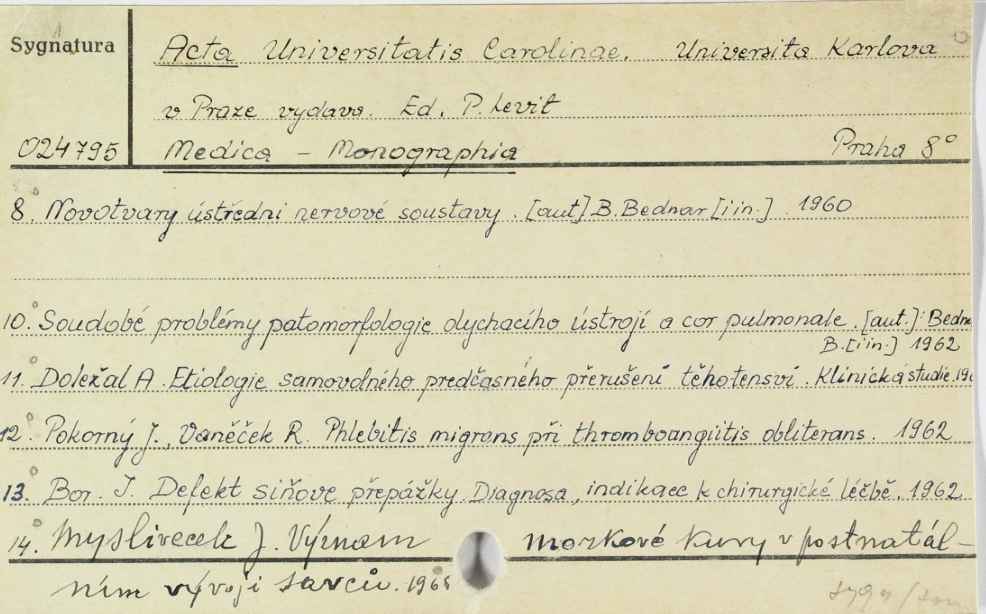 Sygnatura
Acta Universitatis Carolinae. Universita Karlova
v Praze vydava. Ed. P. Levit
024795 Medica - Monographia Praha 8°
8. Novotvary ústředni nervové soustavy. [aut] B. Bednar [i in.] . 1960
10. Soudobé problémy patomorfologie dychacího ústrojí a cor pulmonale. [aut.]: Bedna
B. [i in.] 1962
11. Doležal A. Etiologie samovolného predčasného přerušení těhotensví. Klinická studie. 19
12. Pokorný J., Vaněček R. Phlebitis migrans při thromboangiitis obliterans. 1962
13. Bor. J. Defekt siňove přepážky. Diagnosa, indikace k chirurgické léčbě. 1962
14. Myslivecek J. Význam morkové kury v postnatál-
ním vývoji savců.